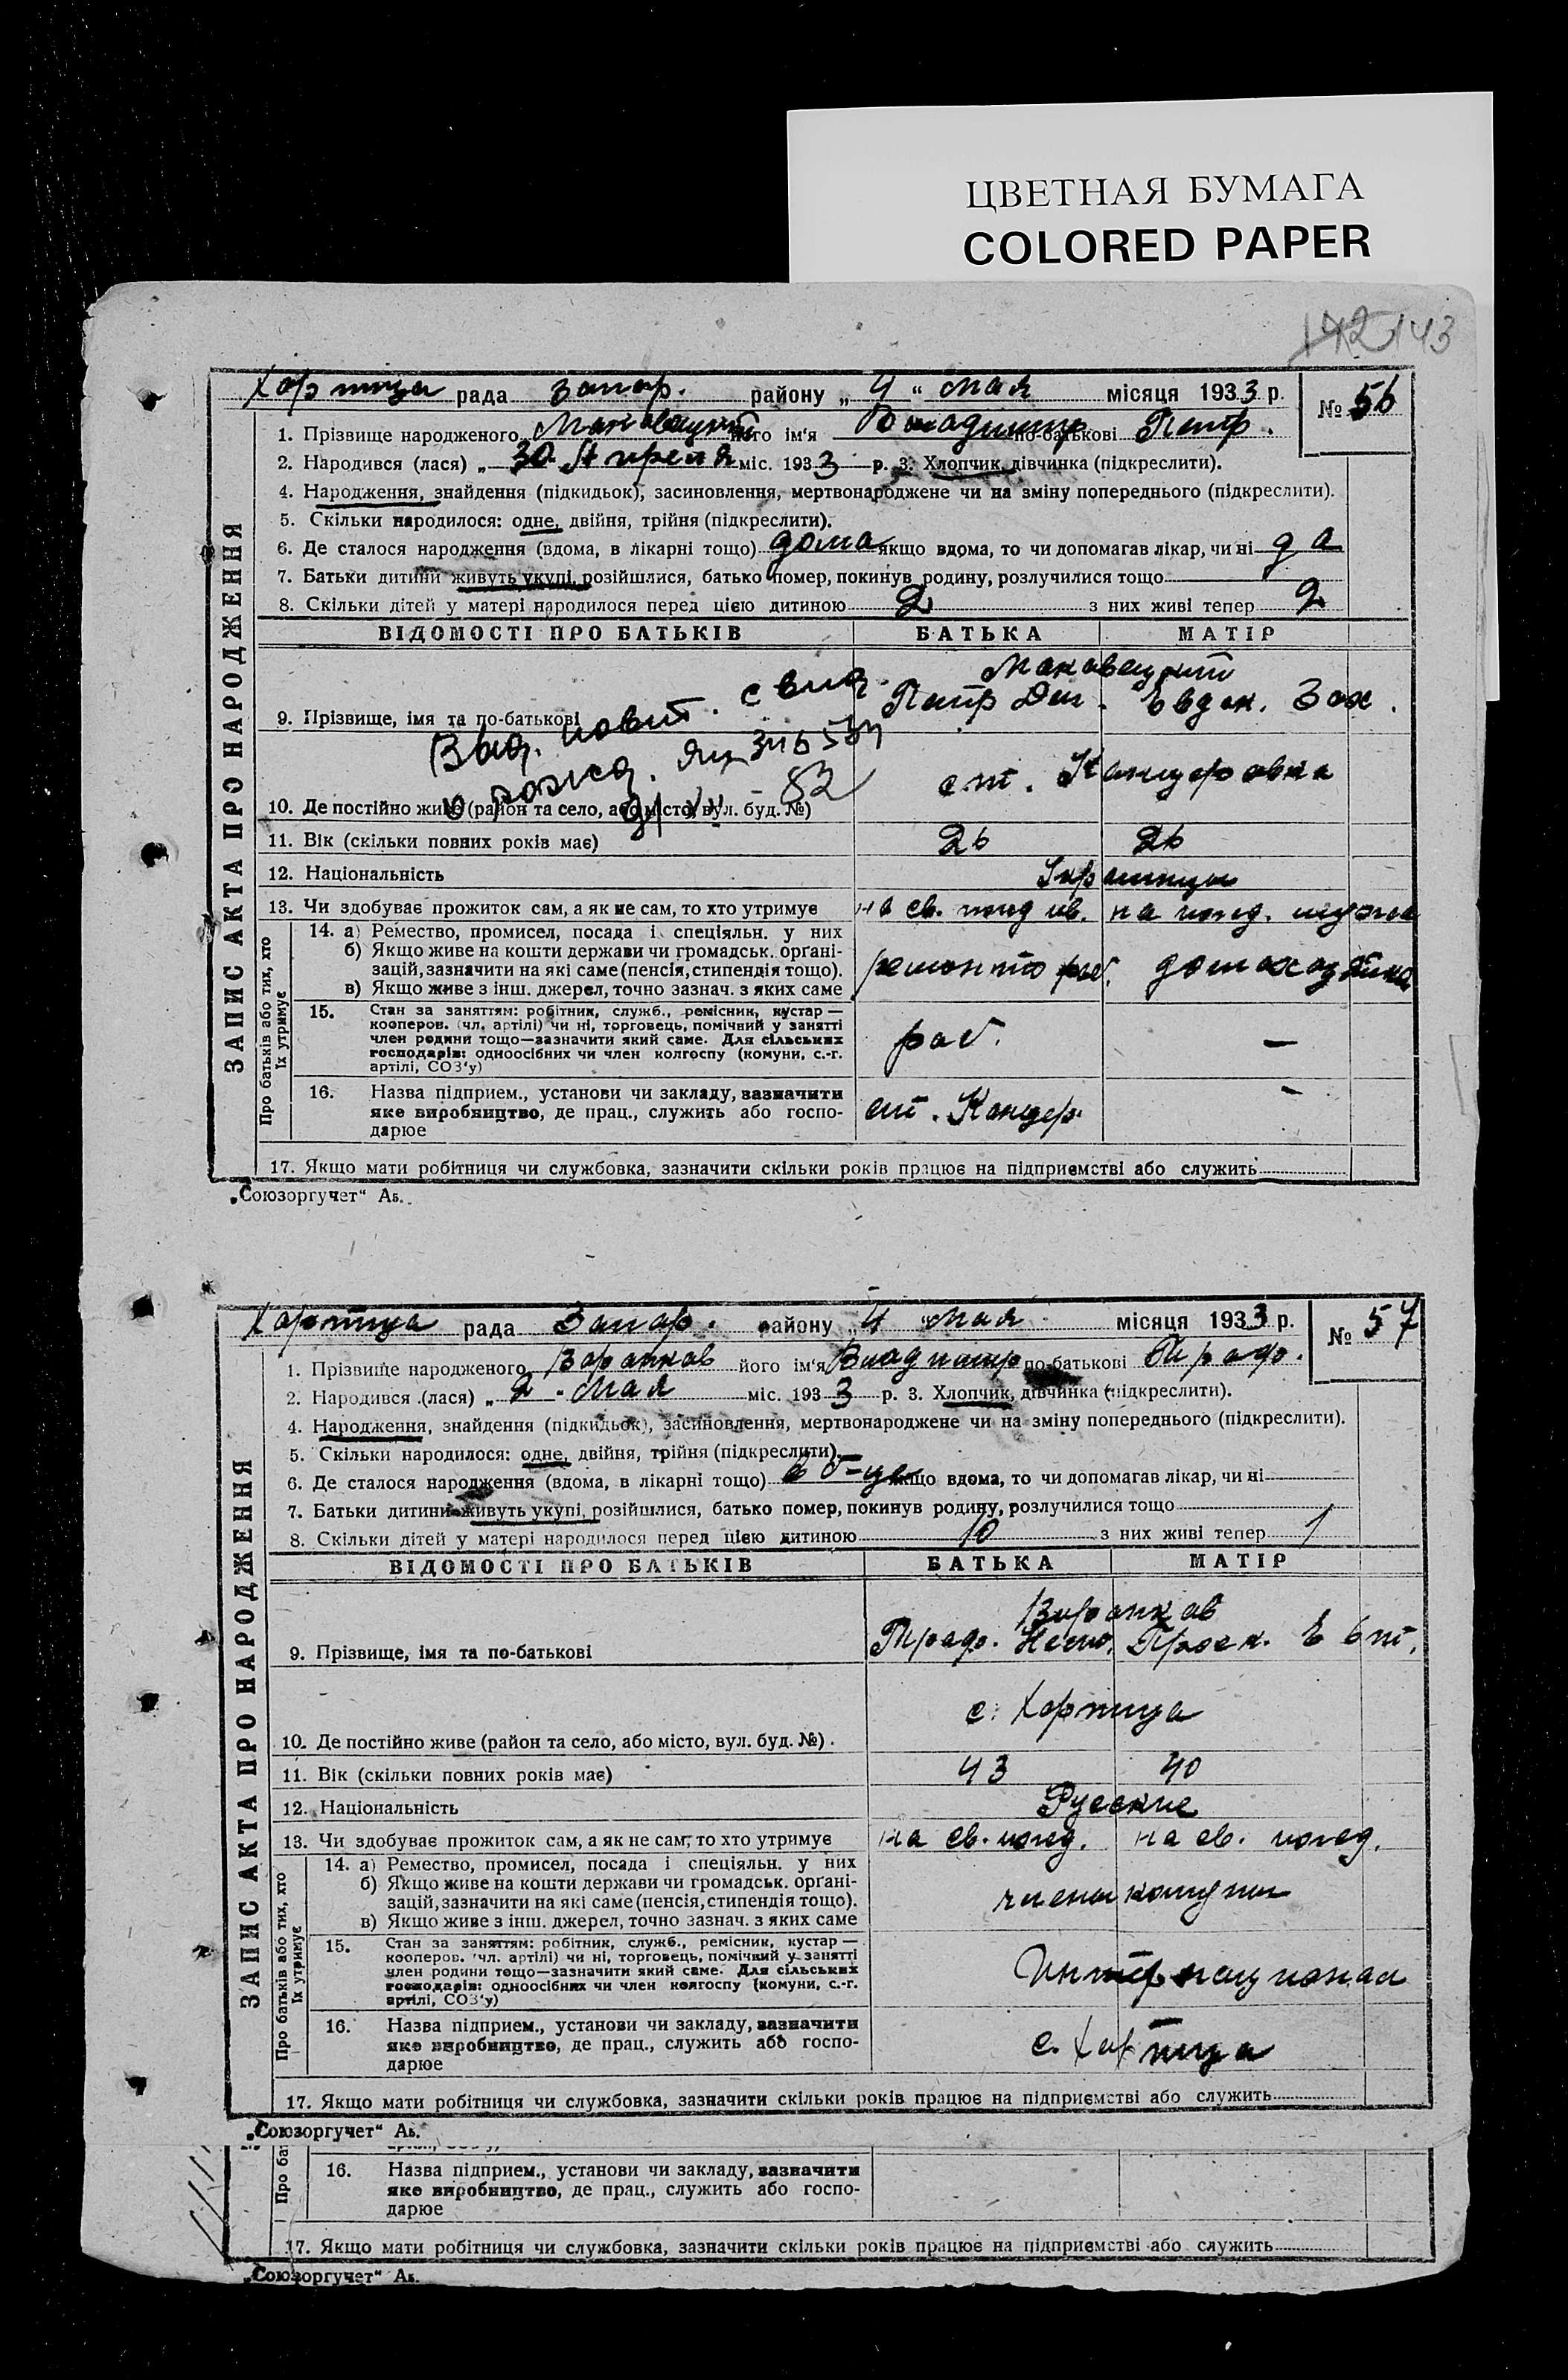 ЦВЕТНАЯ БУМАГА
COLORED PAPER
142 143
Хортица рада Запор. району „ 4 “ мая місяця 1933 р. № 56
1. Прізвище народженого Маковецкий його ім‘я Владимир по-батькові Петр.
2. Народився (лася) „ 30 Апреля міс. 1933 р. 3. Хлопчик, дівчинка (підкреслити).
4. Народження, знайдення (підкидьок), засиновлення, мертвонароджене чи на зміну попереднього (підкреслити).
5. Скільки народилося: одне, двійня, трійня (підкреслити).
6. Де сталося народження (вдома, в лікарні тощо) дома якщо вдома, то чи допомагав лікар, чи ні да
7. Батьки дитини живуть укупі, розійшлися, батько помер, покинув родину, розлучилися тощо
8. Скільки дітей у матері народилося перед цією дитиною 2 з них живі тепер 2
ЗАПИС АКТА ПРО НАРОДЖЕННЯ
ВІДОМОСТІ ПРО БАТЬКІВ БАТЬКА МАТІР
Маковецкий
9. Прізвище, імя та по-батькові Петр Дем. Евдок. Зах.
Выд. повт. свид.
о рожд.
10. Де постійно живе (район та село, або місто, вул. буд. №) ст. Канцеровка
11. Вік (скільки повних років має) 26 26
12. Національність Украинцы
13. Чи здобуває прожиток сам, а як не сам, то хто утримує на св. на ижд. мужа
Про батьків або тих, хто їх утримує
14. а) Ремество, промисел, посада і спеціяльн. у них
б) Якщо живе на кошти держави чи громадськ. орґані-
зацій, зазначити на які саме (пенсія, стипендія тощо).
в) Якщо живе з інш. джерел, точно зазнач. з яких саме
ремонт раб. домохозяйка
15. Стан за заняттям: робітник, служб., ремісник, кустар —
кооперов. (чл. артілі) чи ні, торговець, помічний у занятті
член родини тощо—зазначити який саме. Для сільських
господарів: одноосібних чи член колгоспу (комуни, с.-г.
артілі, СОЗ‘у)
раб. —
16. Назва підприєм., установи чи закладу, зазначити
яке виробництво, де прац., служить або госпо-
дарює
ст. Канцер. -
17. Якщо мати робітниця чи службовка, зазначити скільки років працює на підприємстві або служить
„Союзоргучет“ Ав.
Хортица рада Запор. району „ 4 “ мая місяця 1933 р. № 57
1. Прізвище народженого Воронков його ім‘я Владимир по-батькові
2. Народився (лася) „ 2 - мая міс. 1933 р. 3. Хлопчик, дівчинка (підкреслити).
4. Народження, знайдення (підкидьок), засиновлення, мертвонароджене чи на зміну попереднього (підкреслити).
5. Скільки народилося: одне, двійня, трійня (підкреслити).
6. Де сталося народження (вдома, в лікарні тощо) в б-це якщо вдома, то чи допомагав лікар, чи ні
7. Батьки дитини живуть укупі, розійшлися, батько помер, покинув родину, розлучилися тощо
8. Скільки дітей у матері народилося перед цією дитиною 10 з них живі тепер 1
ЗАПИС АКТА ПРО НАРОДЖЕННЯ
ВІДОМОСТІ ПРО БАТЬКІВ БАТЬКА МАТІР
Воронков
9. Прізвище, імя та по-батькові
10. Де постійно живе (район та село, або місто, вул. буд. №) с. Хортица
11. Вік (скільки повних років має) 43 40
12. Національність Русские
13. Чи здобуває прожиток сам, а як не сам, то хто утримує на св. ижд. на св. ижд.
Про батьків або тих, хто їх утримує
14. а) Ремество, промисел, посада і спеціяльн. у них
б) Якщо живе на кошти держави чи громадськ. орґані-
зацій, зазначити на які саме (пенсія, стипендія тощо).
в) Якщо живе з інш. джерел, точно зазнач. з яких саме
члены комуны
15. Стан за заняттям: робітник, служб., ремісник, кустар —
кооперов. (чл. артілі) чи ні, торговець, помічний у занятті
член родини тощо—зазначити який саме. Для сільських
господарів: одноосібних чи член колгоспу (комуни, с.-г.
артілі, СОЗ‘у)
Интернационал
16. Назва підприєм., установи чи закладу, зазначити
яке виробництво, де прац., служить або госпо-
дарює
с. Хортица
17. Якщо мати робітниця чи службовка, зазначити скільки років працює на підприємстві або служить
„Союзоргучет“ Ав.
Про ба
16. Назва підприєм., установи чи закладу, зазначити
яке виробництво, де прац., служить або госпо-
дарює
17. Якщо мати робітниця чи службовка, зазначити скільки років працює на підприємстві або служить
„Союзоргучет“ Ав.